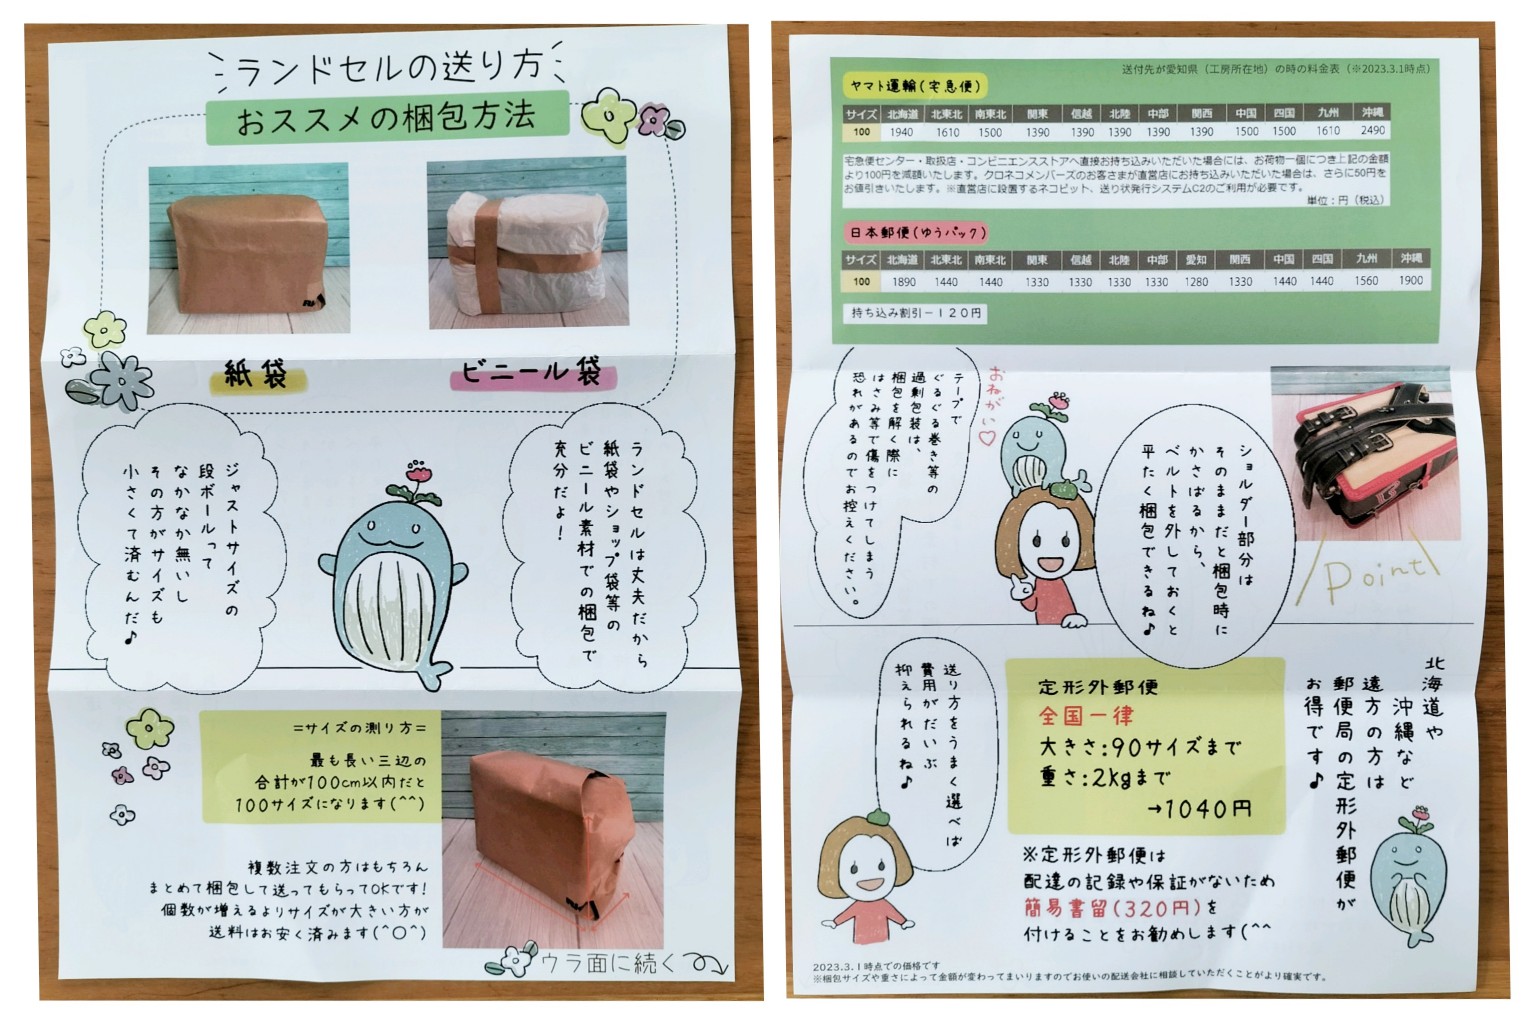 ランドセルの送り方
おススメの梱包方法
紙袋
ビニール袋
ランドセルは丈夫だから
紙袋やショップ袋等の
ビニール素材での梱包で
充分だよ!
ジャストサイズの
段ボールって
なかなか無いし
その方がサイズも
小さくて済むんだ♪
=サイズの測り方=
最も長い三辺の
合計が100cm以内だと
100サイズになります(^^)
複数注文の方はもちろん
まとめて梱包して送ってもらってOKです!
個数が増えるよりサイズが大きい方が
送料はお安く済みます(^○^)
ウラ面に続く
送付先が愛知県(工房所在地)の時の料金表(※2023.3.1時点)
ヤマト運輸(宅急便)
サイズ 北海道 北東北 南東北 関東 信越 北陸 中部 関西 中国 四国 九州 沖縄
100 1940 1610 1500 1390 1390 1390 1390 1390 1500 1500 1610 2490
宅急便センター・取扱店・コンビニエンスストアへ直接お持ち込みいただいた場合には、お荷物一個につき上記の金額
より100円を減額いたします。クロネコメンバーズのお客さまが直営店にお持ち込みいただいた場合は、さらに50円を
お値引きいたします。※直営店に設置するネコピット、送り状発行システムC2のご利用が必要です。
単位:円(税込)
日本郵便(ゆうパック)
サイズ 北海道 北東北 南東北 関東 信越 北陸 中部 愛知 関西 中国 四国 九州 沖縄
100 1890 1440 1440 1330 1330 1330 1330 1280 1330 1440 1440 1560 1900
持ち込み割引-120円
ショルダー部分は
そのままだと梱包時に
かさばるから、
ベルトを外しておくと
平たく梱包できるね♪
Point
おねがい♡
テープで
ぐるぐる巻き等の
過剰包装は、
梱包を解く際に
はさみ等で傷をつけてしまう
恐れがあるのでお控えください。
北海道や
沖縄など
遠方の方は
郵便局の定形外郵便が
お得です♪
定形外郵便
全国一律
大きさ:90サイズまで
重さ:2kgまで
→1040円
※定形外郵便は
配達の記録や保証がないため
簡易書留(320円)を
付けることをお勧めします(^^
送り方をうまく選べば
費用がだいぶ
抑えられるね♪
2023.3.1時点での価格です
※梱包サイズや重さによって金額が変わってまいりますのでお使いの配送会社に相談していただくことがより確実です。